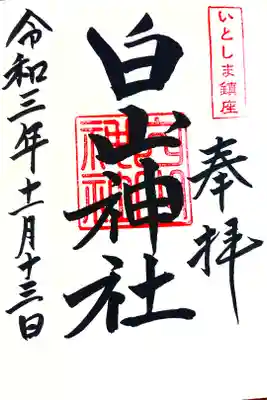 いとしま鎮座
奉拝
白山神社
令和三年十一月十三日